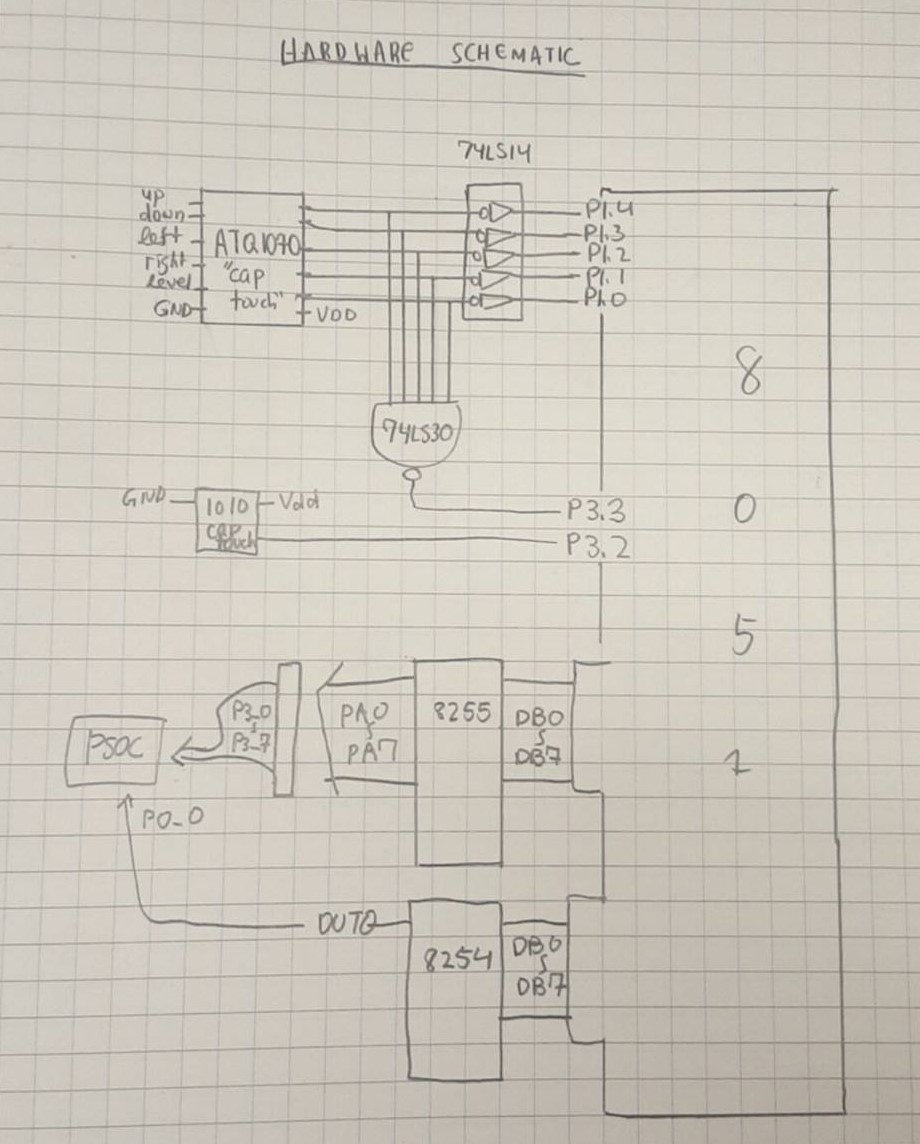 HARDWARE SCHEMATIC
74LS14
up
down
left
right
level
GND
ATQ1070
"cap
touch"
VDD
P1.4
P1.3
P1.2
P1.1
P1.0
8
74LS30
GND
1010
cap
touch
Vdd
P3.3
P3.2
0
5
PSOC
P3_0
P3_7
PA0
PA7
8255
DB0
DB7
1
P0_0
OUT0
8254
DB0
DB7